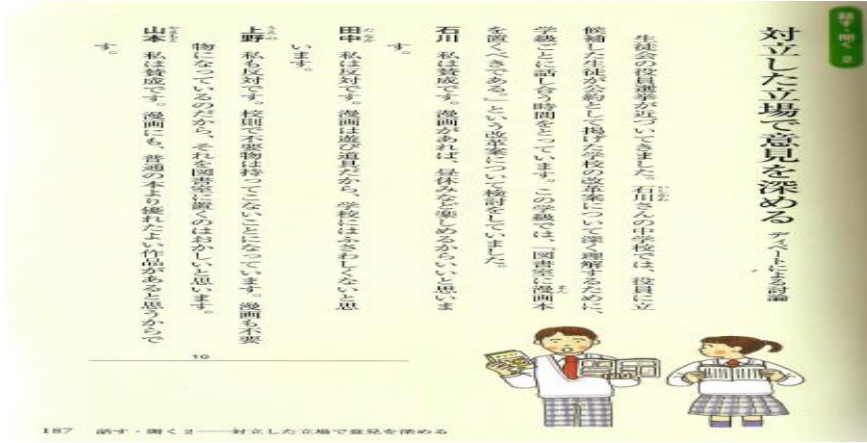 話す・聞く 2
対立した立場で意見を深める ディベートによる討論
生徒会の役員選挙が近づいてきました。石川さんの中学校では、役員に立
候補した生徒が公約として掲げた学校の改革案について深く理解するために、
学級ごとに話し合う時間をとっています。この学級では、「図書室に漫画本
を置くべきである。」という改革案について検討をしていました。
石川 私は賛成です。漫画があれば、昼休みなど楽しめるからいいと思いま
す。
田中 私は反対です。漫画は遊び道具だから、学校にはふさわしくないと思
います。
上野 私も反対です。校則で不要物は持ってこないことになっています。漫画も不要
物になっているのだから、それを図書室に置くのはおかしいと思います。
山本 私は賛成です。漫画にも、普通の本より優れたよい作品があると思うからで
す。
10
187 話す・聞く 2——対立した立場で意見を深める